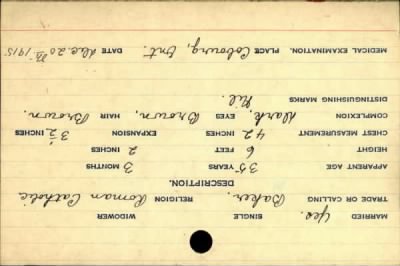 MARRIED Yes. SINGLE WIDOWER
TRADE OR CALLING Baker. RELIGION Roman Catholic
DESCRIPTION.
APPARENT AGE 35 YEARS 3 MONTHS
HEIGHT 6 FEET 2 INCHES
CHEST MEASUREMENT 42 INCHES EXPANSION 3 1/2 INCHES
COMPLEXION Dark. EYES Brown, HAIR Brown.
DISTINGUISHING MARKS Nil.
MEDICAL EXAMINATION. PLACE Cobourg, Ont. DATE Dec. 20th 1915